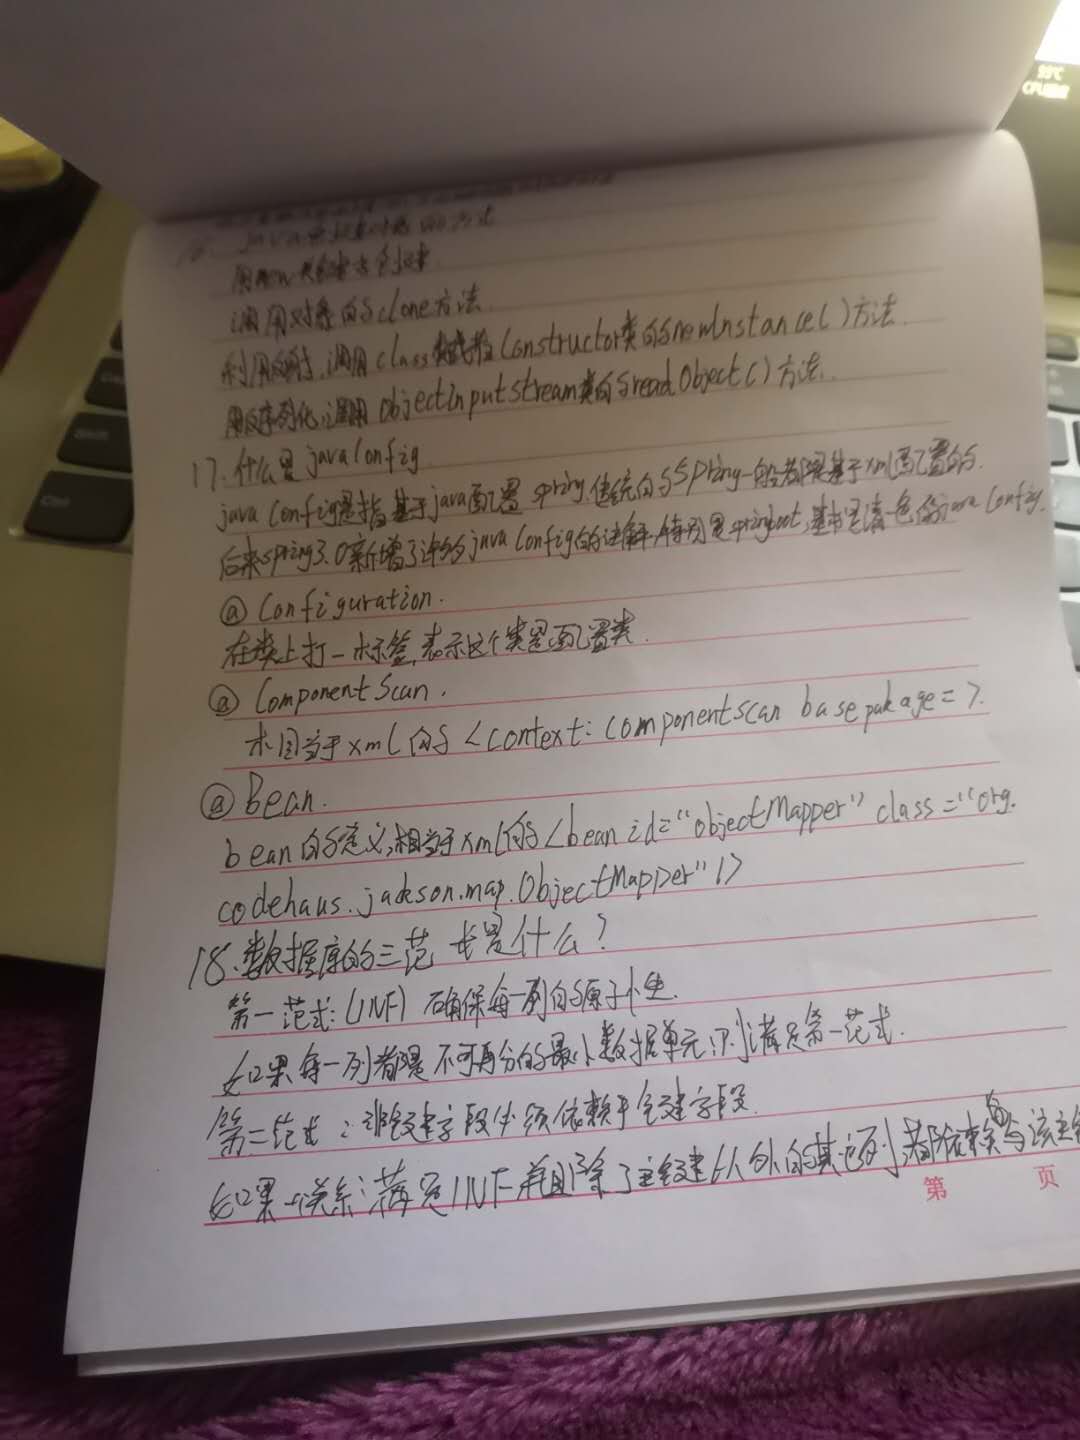 java 对象 方式
用new 关键字去创建
调用对象的clone方法
利用反射,调用class类或者Constructor类的newInstance()方法
用反序列化,调用ObjectInputStream类的readObject()方法.
17.什么是javaConfig
java Config是指基于java配置spring.传统的Spring一般都是基于xml配置的.
后来spring3.0新增了许多java Config的注解,特别是springboot,基本是清一色的java Config.
@Configuration.
在类上打一标签,表示这个类是配置类.
@ComponentScan.
相当于xml的<context:componentscan basepakage=>.
@Bean.
bean的定义,相当于xml的<bean id="objectMapper" class="org.
codehaus.jackson.map.ObjectMapper"/>
18.数据库的三范式是什么?
第一范式:(1NF)确保每一列的原子性.
如果每一列都是不可再分的最小数据单元,则满足第一范式.
第二范式:非键字段必须依赖于键字段.
如果一关系满足1NF并且除了主键以外的其它列,都依赖与该主键
第 页
55℃
CPU温度